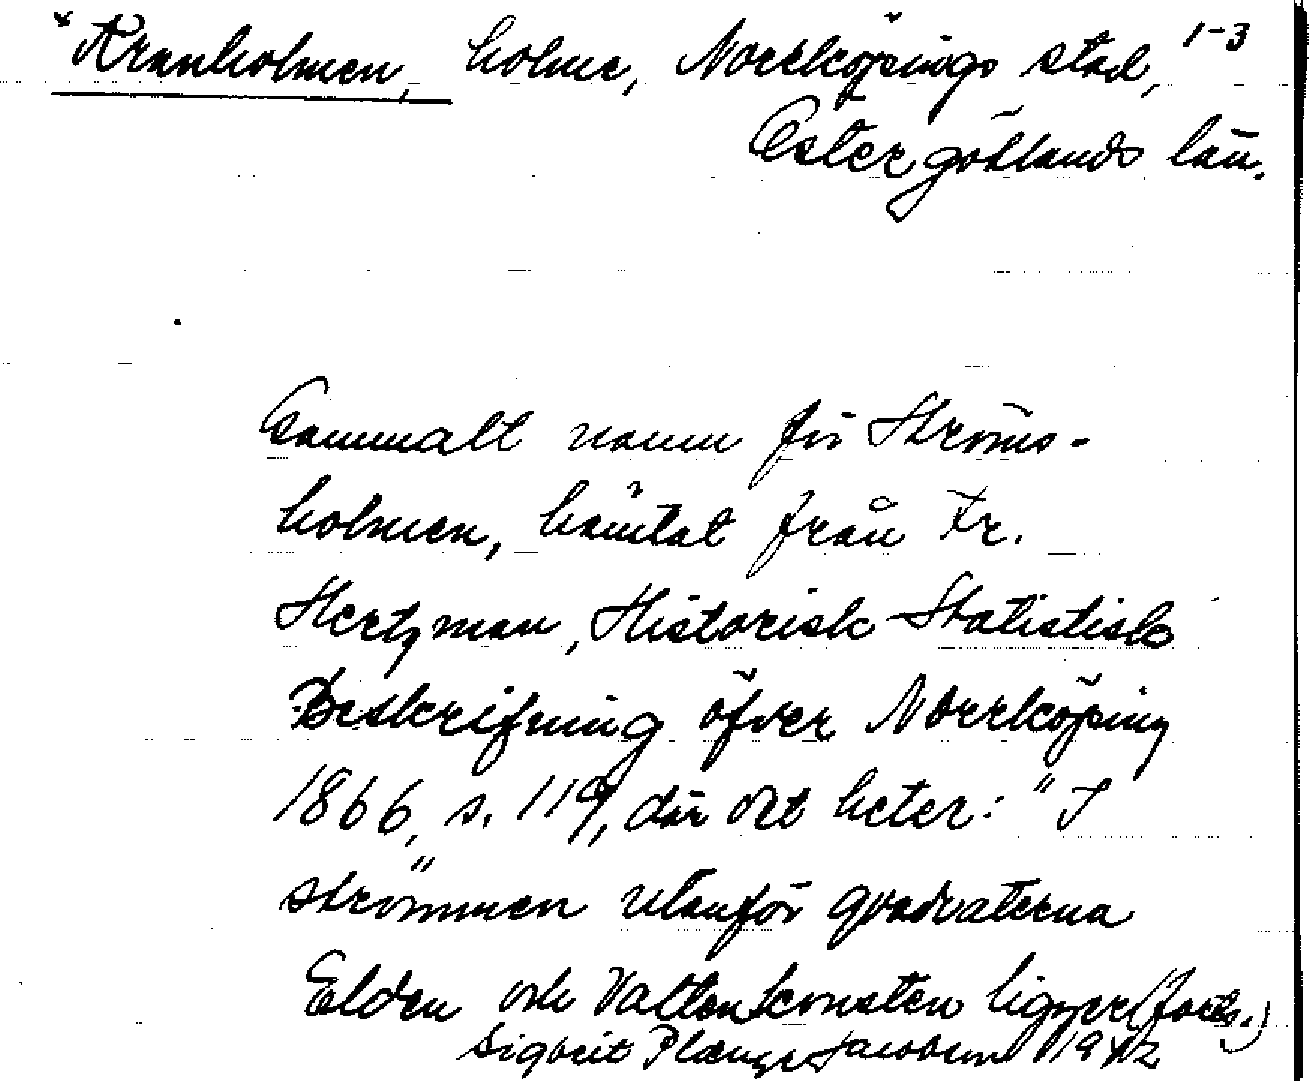 *Kranholmen, holme, Norrköpings stad, 1-3
Östergötlands län.
Gammalt namn för Ströms-
holmen, hämtat från Fr.
Hertzman, Historisk Statistisk
Beskrifning öfver Norrköping
1866, s. 119, där det heter: "I
strömmen utanför qvadraterna
Elden och Vattenkonsten ligger (forts.)
Sigbrit Plænge Jacobson 1942